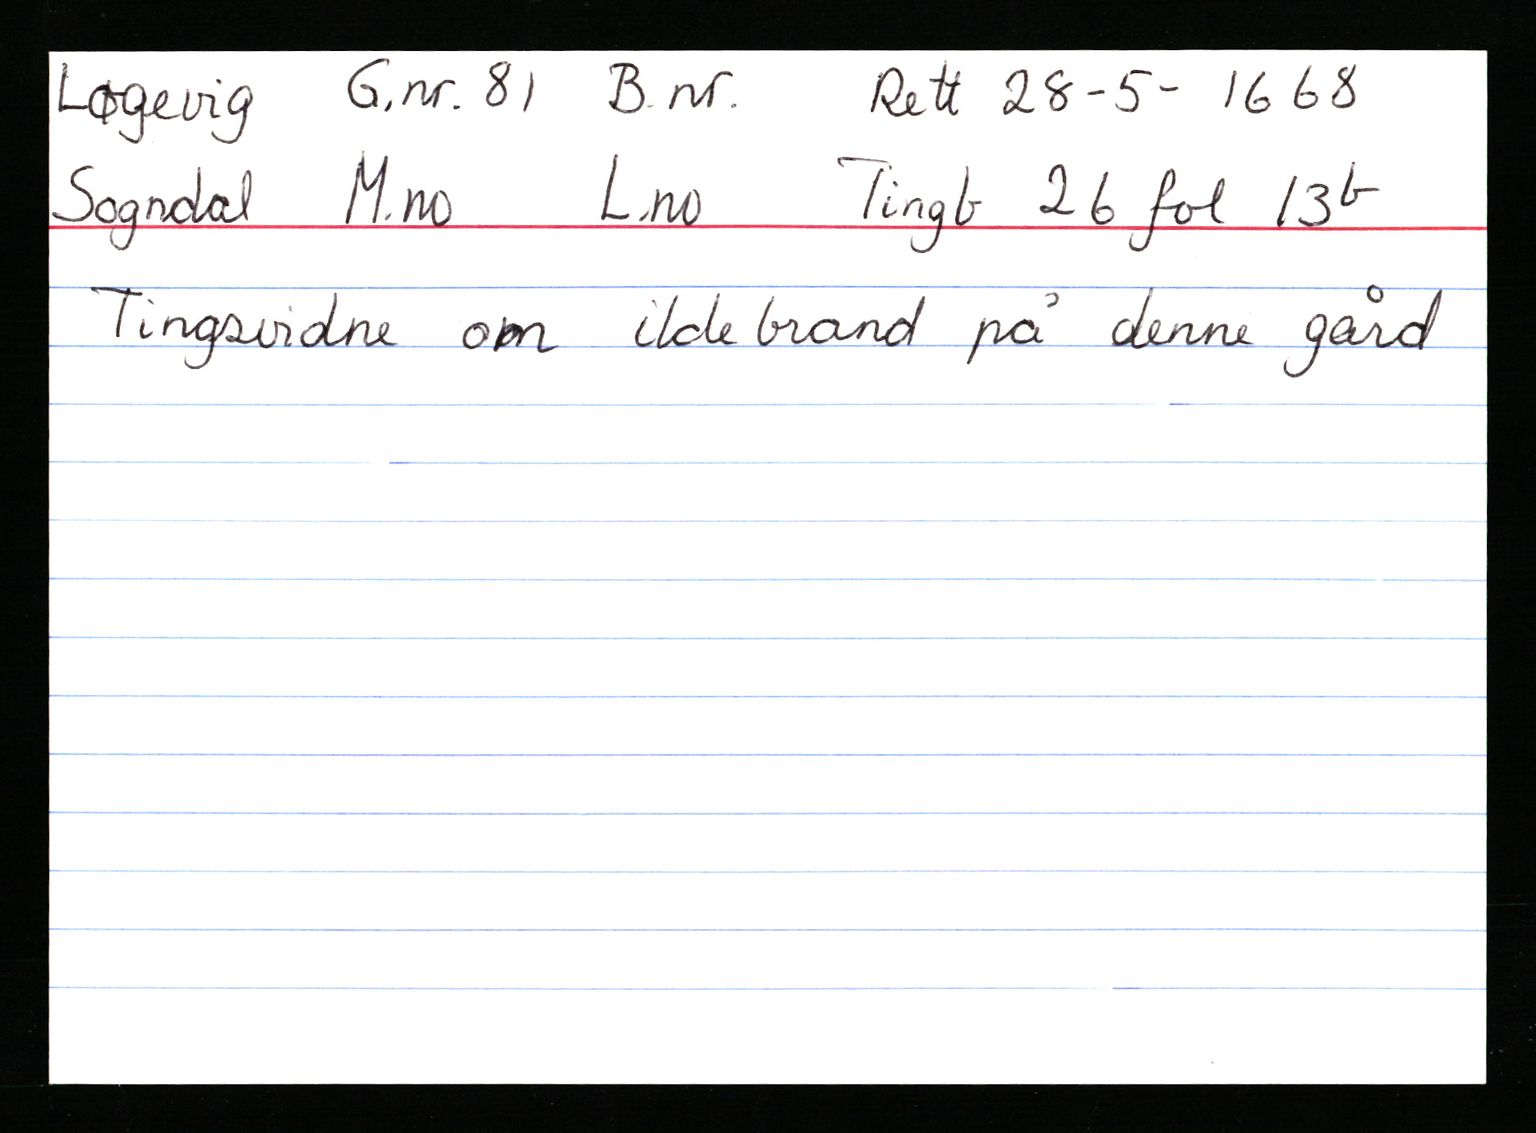 Løgevig G.nr. 81 B.nr. Rett 28-5-1668
Sogndal M.no L.no Tingb 26 fol 13b
Tingsvidne om ildebrand på denne gård